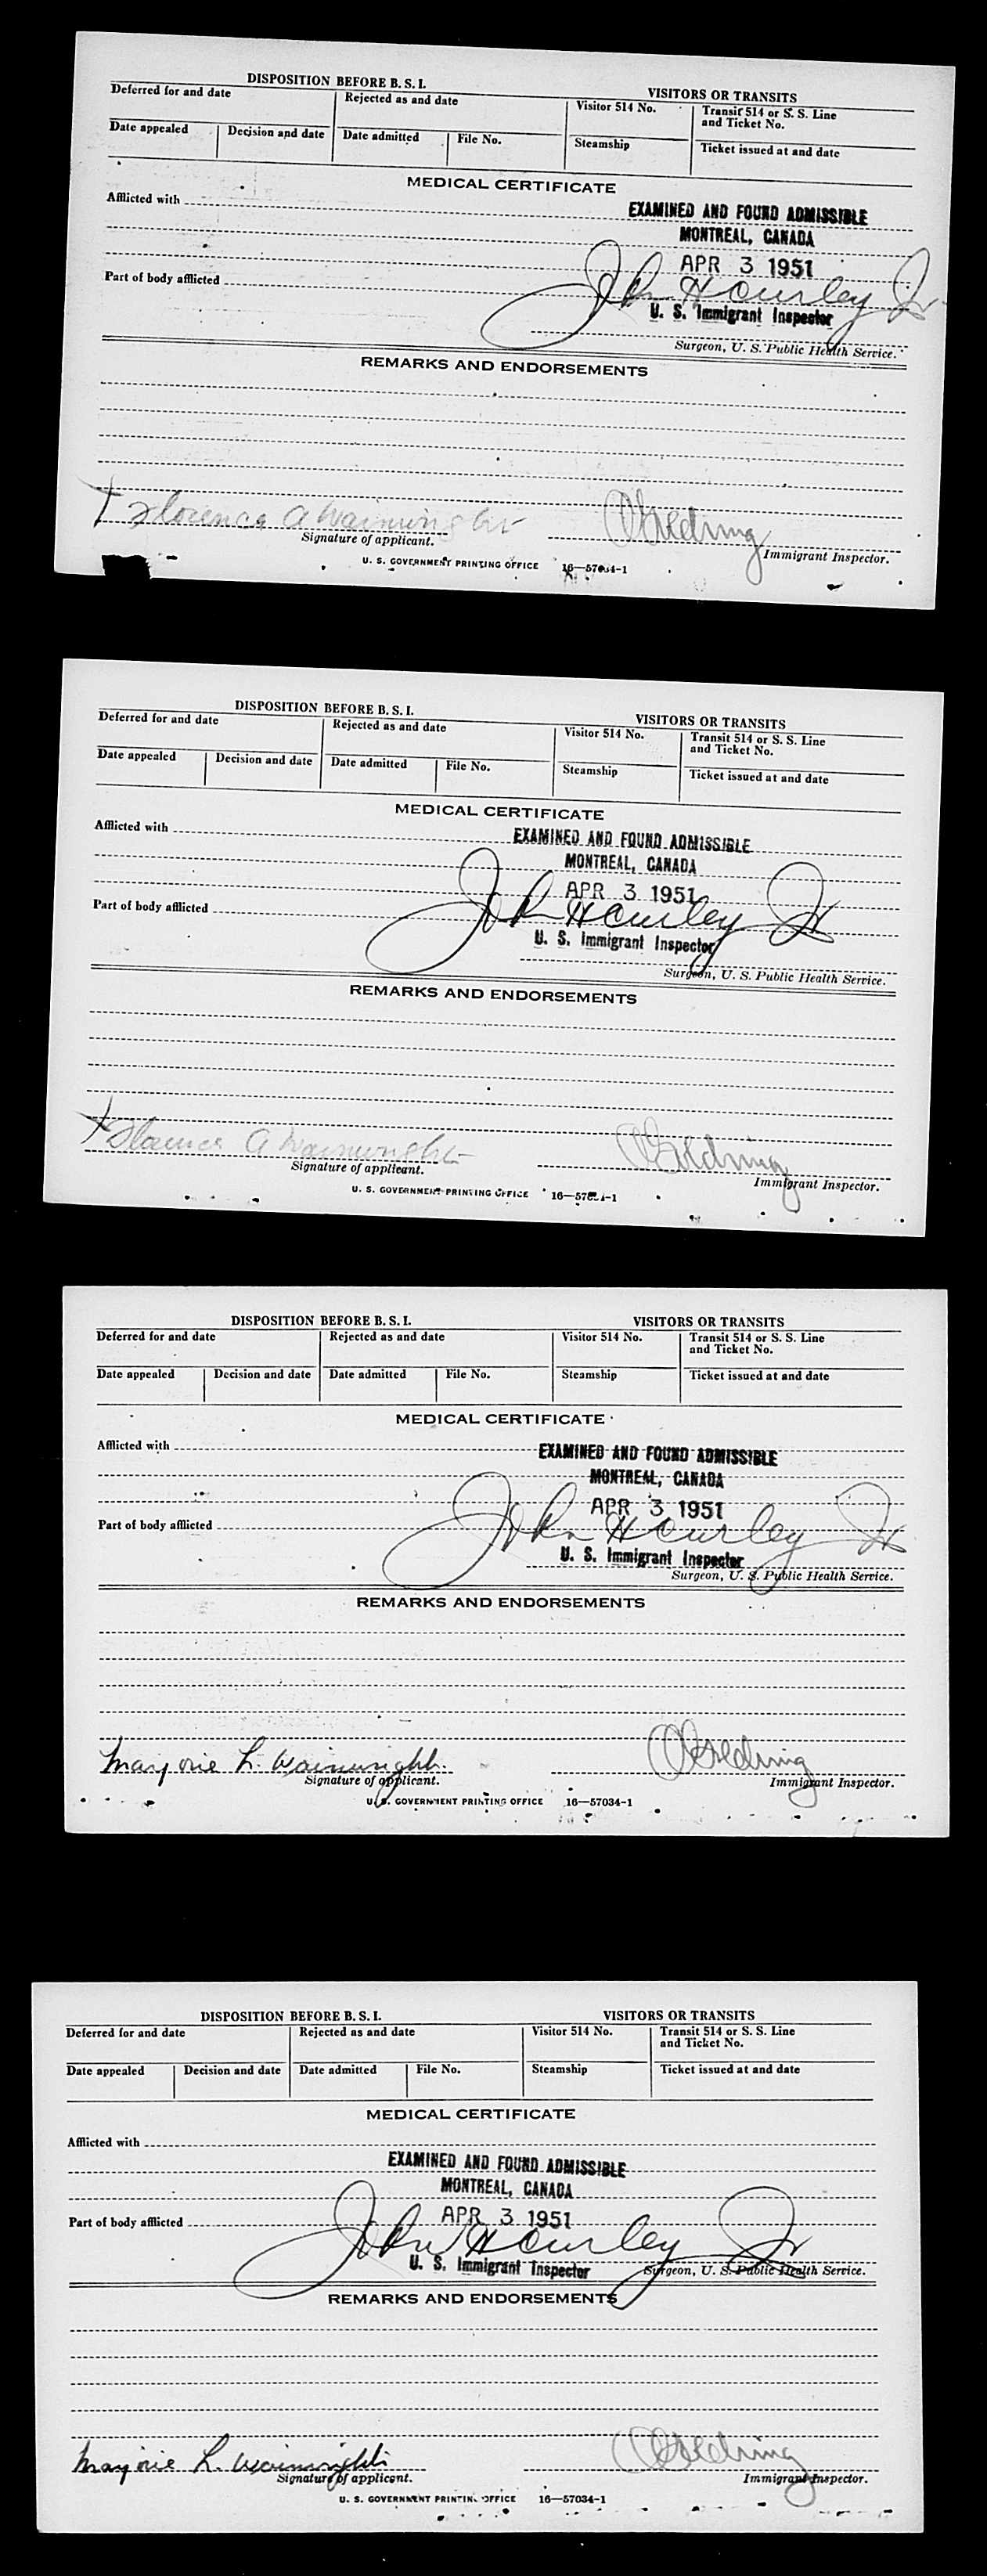 DISPOSITION BEFORE B. S. I. VISITORS OR TRANSITS
Deferred for and date Rejected as and date Visitor 514 No. Transit 514 or S. S. Line and Ticket No.
Date appealed Decision and date Date admitted File No. Steamship Ticket issued at and date
MEDICAL CERTIFICATE
Afflicted with
EXAMINED AND FOUND ADMISSIBLE
MONTREAL, CANADA
APR 3 1951
Part of body afflicted
John Hourley Jr
U. S. Immigrant Inspector
Surgeon, U. S. Public Health Service.
REMARKS AND ENDORSEMENTS
Florence A Wainwright
Signature of applicant. Immigrant Inspector.
U. S. GOVERNMENT PRINTING OFFICE 16—57034-1
DISPOSITION BEFORE B. S. I. VISITORS OR TRANSITS
Deferred for and date Rejected as and date Visitor 514 No. Transit 514 or S. S. Line and Ticket No.
Date appealed Decision and date Date admitted File No. Steamship Ticket issued at and date
MEDICAL CERTIFICATE
Afflicted with
EXAMINED AND FOUND ADMISSIBLE
MONTREAL, CANADA
APR 3 1951
Part of body afflicted
John Hourley Jr
U. S. Immigrant Inspector
Surgeon, U. S. Public Health Service.
REMARKS AND ENDORSEMENTS
Florence A Wainwright
Signature of applicant. Immigrant Inspector.
U. S. GOVERNMENT PRINTING OFFICE 16—57034-1
DISPOSITION BEFORE B. S. I. VISITORS OR TRANSITS
Deferred for and date Rejected as and date Visitor 514 No. Transit 514 or S. S. Line and Ticket No.
Date appealed Decision and date Date admitted File No. Steamship Ticket issued at and date
MEDICAL CERTIFICATE
Afflicted with
EXAMINED AND FOUND ADMISSIBLE
MONTREAL, CANADA
APR 3 1951
Part of body afflicted
John Hourley Jr
U. S. Immigrant Inspector
Surgeon, U. S. Public Health Service.
REMARKS AND ENDORSEMENTS
Marjorie L. Wainwright
Signature of applicant. Immigrant Inspector.
U. S. GOVERNMENT PRINTING OFFICE 16—57034-1
DISPOSITION BEFORE B. S. I. VISITORS OR TRANSITS
Deferred for and date Rejected as and date Visitor 514 No. Transit 514 or S. S. Line and Ticket No.
Date appealed Decision and date Date admitted File No. Steamship Ticket issued at and date
MEDICAL CERTIFICATE
Afflicted with
EXAMINED AND FOUND ADMISSIBLE
MONTREAL, CANADA
APR 3 1951
Part of body afflicted
John Hourley Jr
U. S. Immigrant Inspector
Surgeon, U. S. Public Health Service.
REMARKS AND ENDORSEMENTS
Marjorie L. Wainwright
Signature of applicant. Immigrant Inspector.
U. S. GOVERNMENT PRINTING OFFICE 16—57034-1